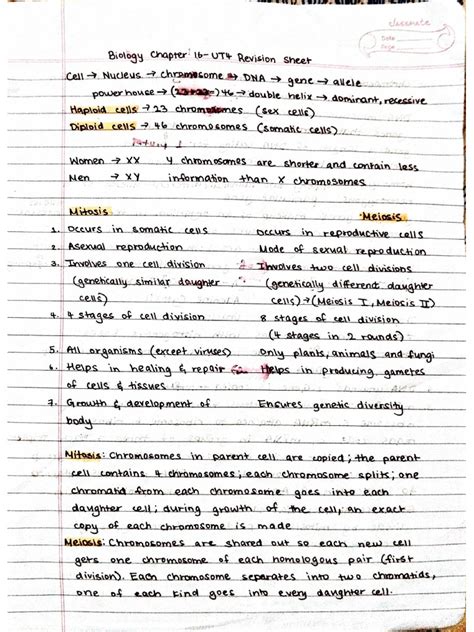 classmate
Date
Page
Biology Chapter 16 - UT4 Revision Sheet
Cell → Nucleus → chromosome → DNA → gene → allele
powerhouse → (23+23) 46 → double helix → dominant, recessive
Haploid cells → 23 chromosomes (sex cells)
Diploid cells → 46 chromosomes (somatic cells)
Women → XX Y chromosomes are shorter and contain less
Men → XY information than X chromosomes
Mitosis Meiosis
1. Occurs in somatic cells Occurs in reproductive cells
2. Asexual reproduction Mode of sexual reproduction
3. Involves one cell division Involves two cell divisions
(genetically similar daughter (genetically different daughter
cells) cells) → (Meiosis I, Meiosis II)
4. 4 stages of cell division 8 stages of cell division
(4 stages in 2 rounds)
5. All organisms (except viruses) Only plants, animals and fungi
6. Helps in healing & repair Helps in producing gametes
of cells & tissues
7. Growth & development of Ensures genetic diversity
body
Mitosis: Chromosomes in parent cell are copied; the parent
cell contains 4 chromosomes; each chromosome splits; one
chromatid from each chromosome goes into each
daughter cell; during growth of the cell, an exact
copy of each chromosome is made
Meiosis: Chromosomes are shared out so each new cell
gets one chromosome of each homologous pair (first
division). Each chromosome separates into two chromatids,
one of each kind goes into every daughter cell.